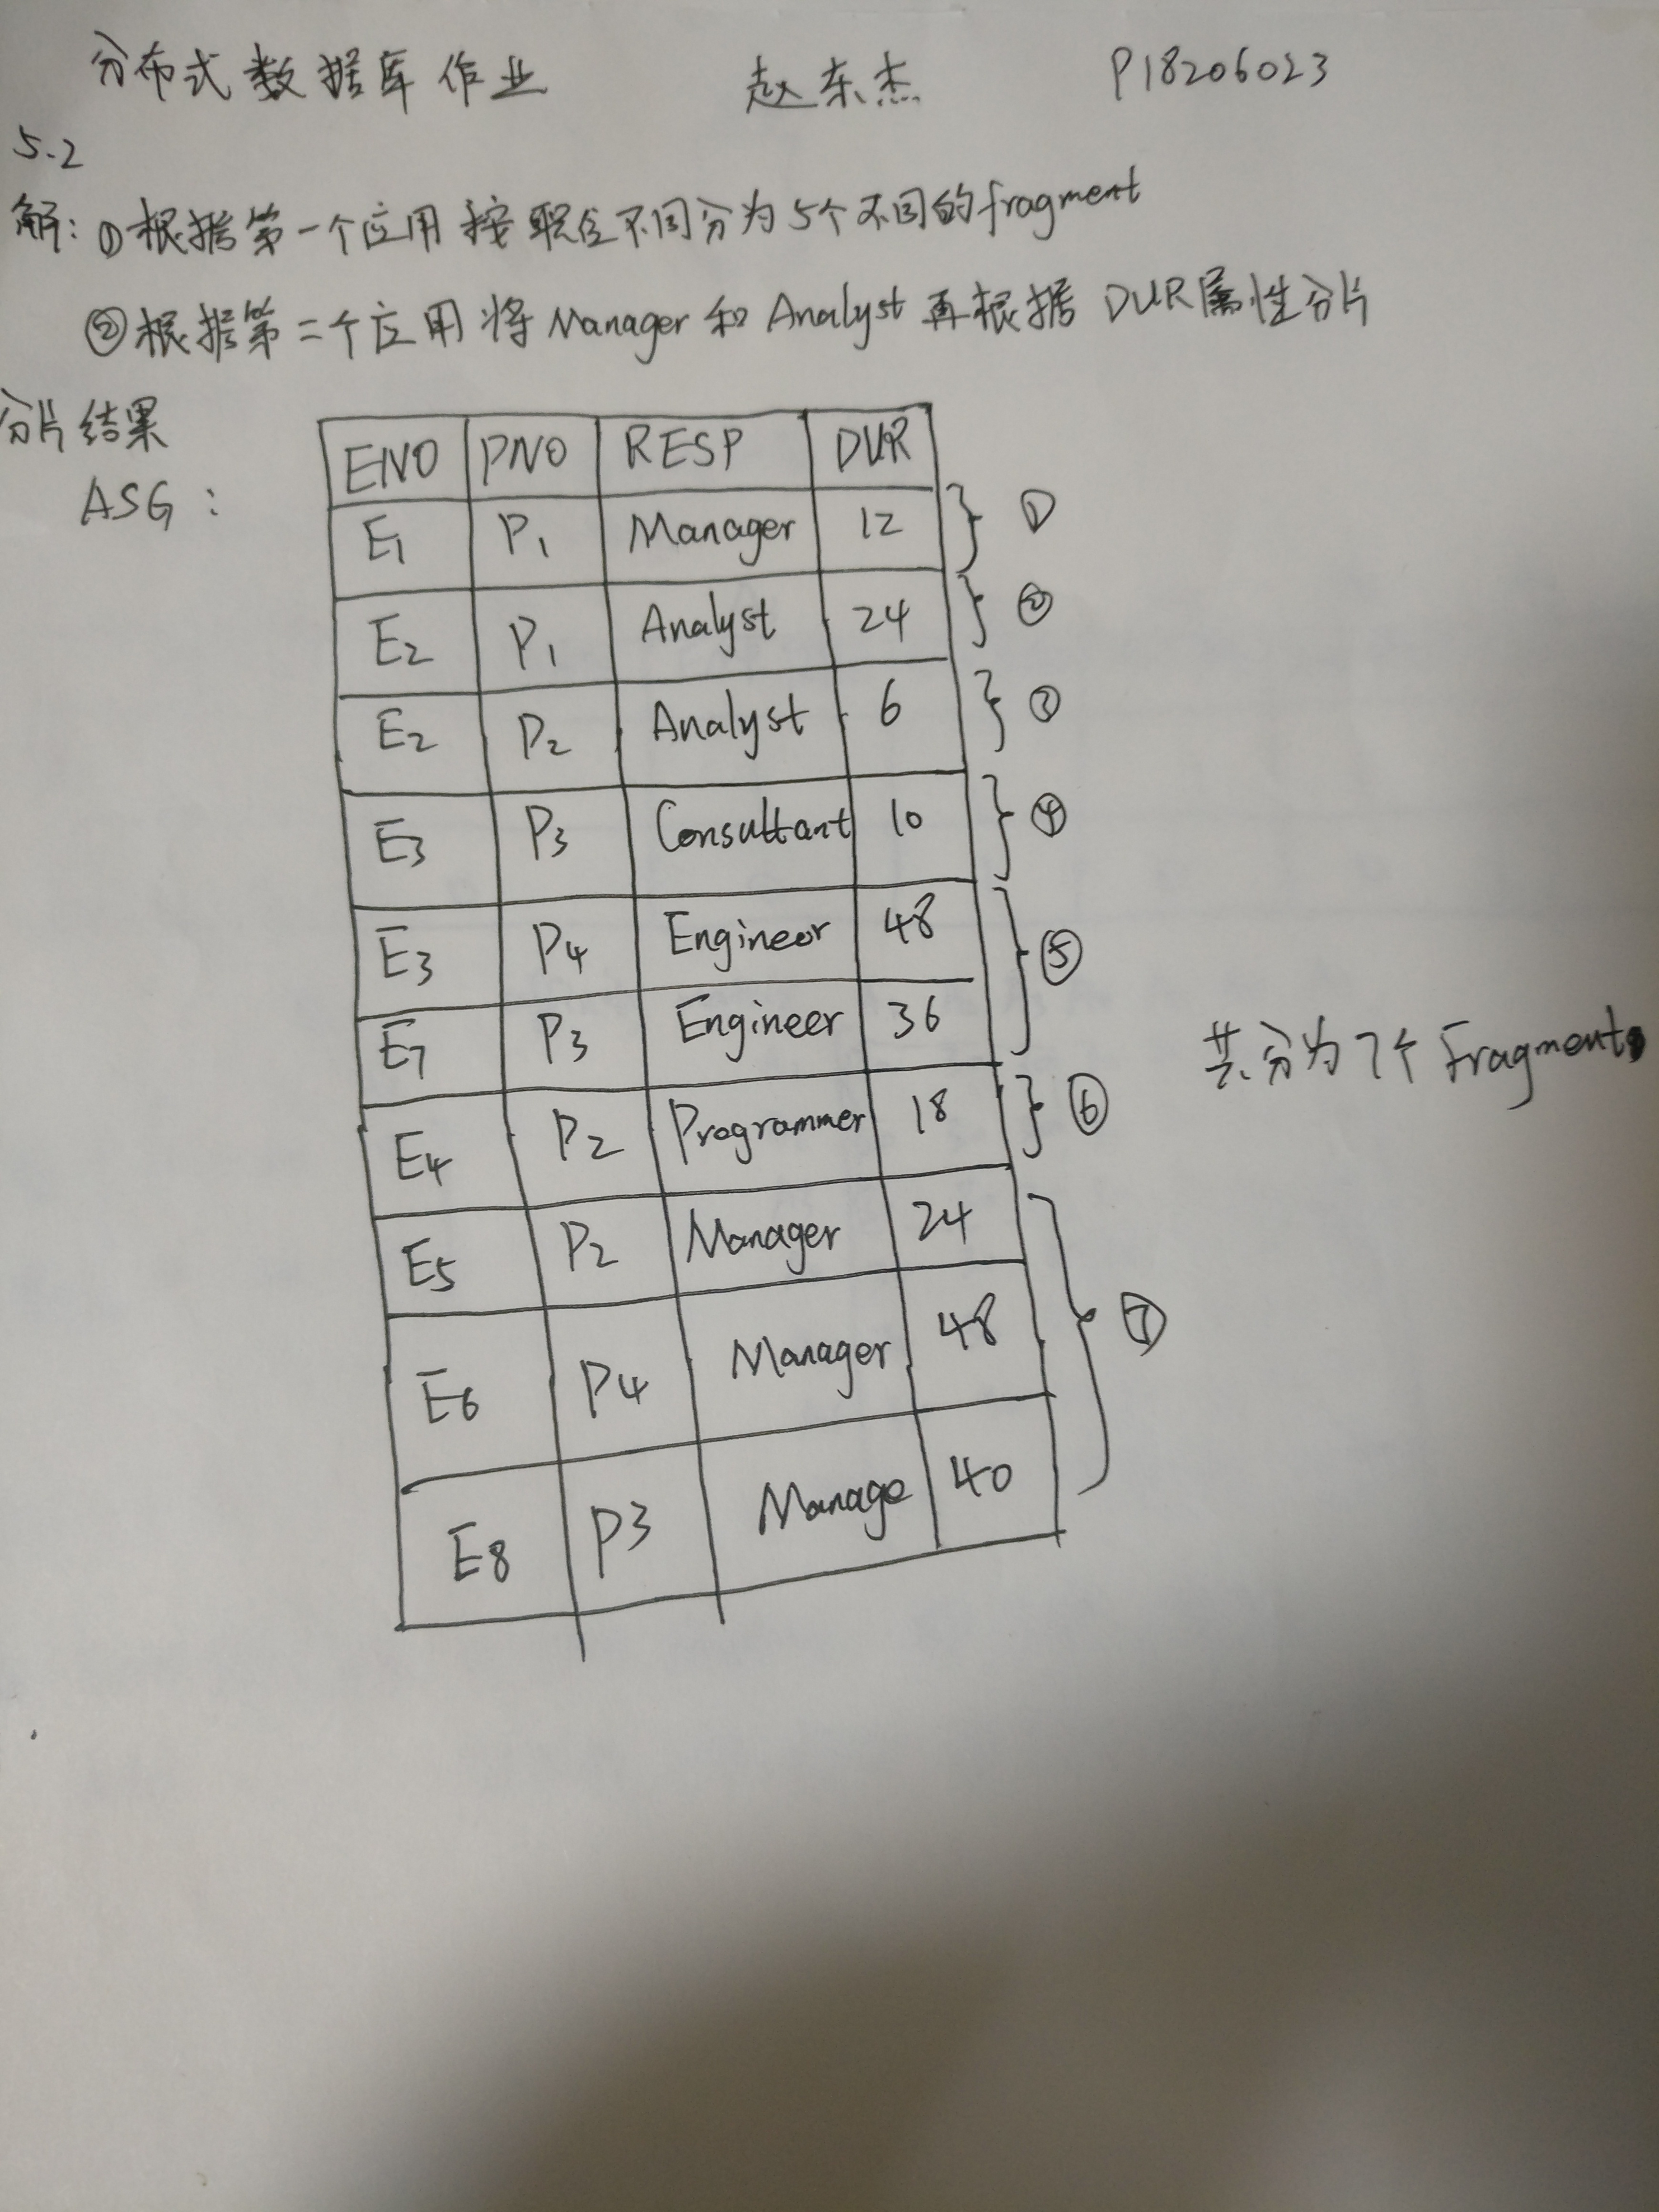 分布式数据库作业 赵东杰 P18206023
5.2
解: ①根据第一个应用按职位不同分为5个不同的fragment
②根据第二个应用将Manager和Analyst再根据DUR属性分片
分片结果
ASG:
ENO PNO RESP DUR
E1 P1 Manager 12 ①
E2 P1 Analyst 24 ②
E2 P2 Analyst 6 ③
E3 P3 Consultant 10 ④
E3 P4 Engineer 48 ⑤
E7 P3 Engineer 36
共分为7个Fragment
E4 P2 Programmer 18 ⑥
E5 P2 Manager 24
E6 P4 Manager 48 ⑦
E8 P3 Manage 40